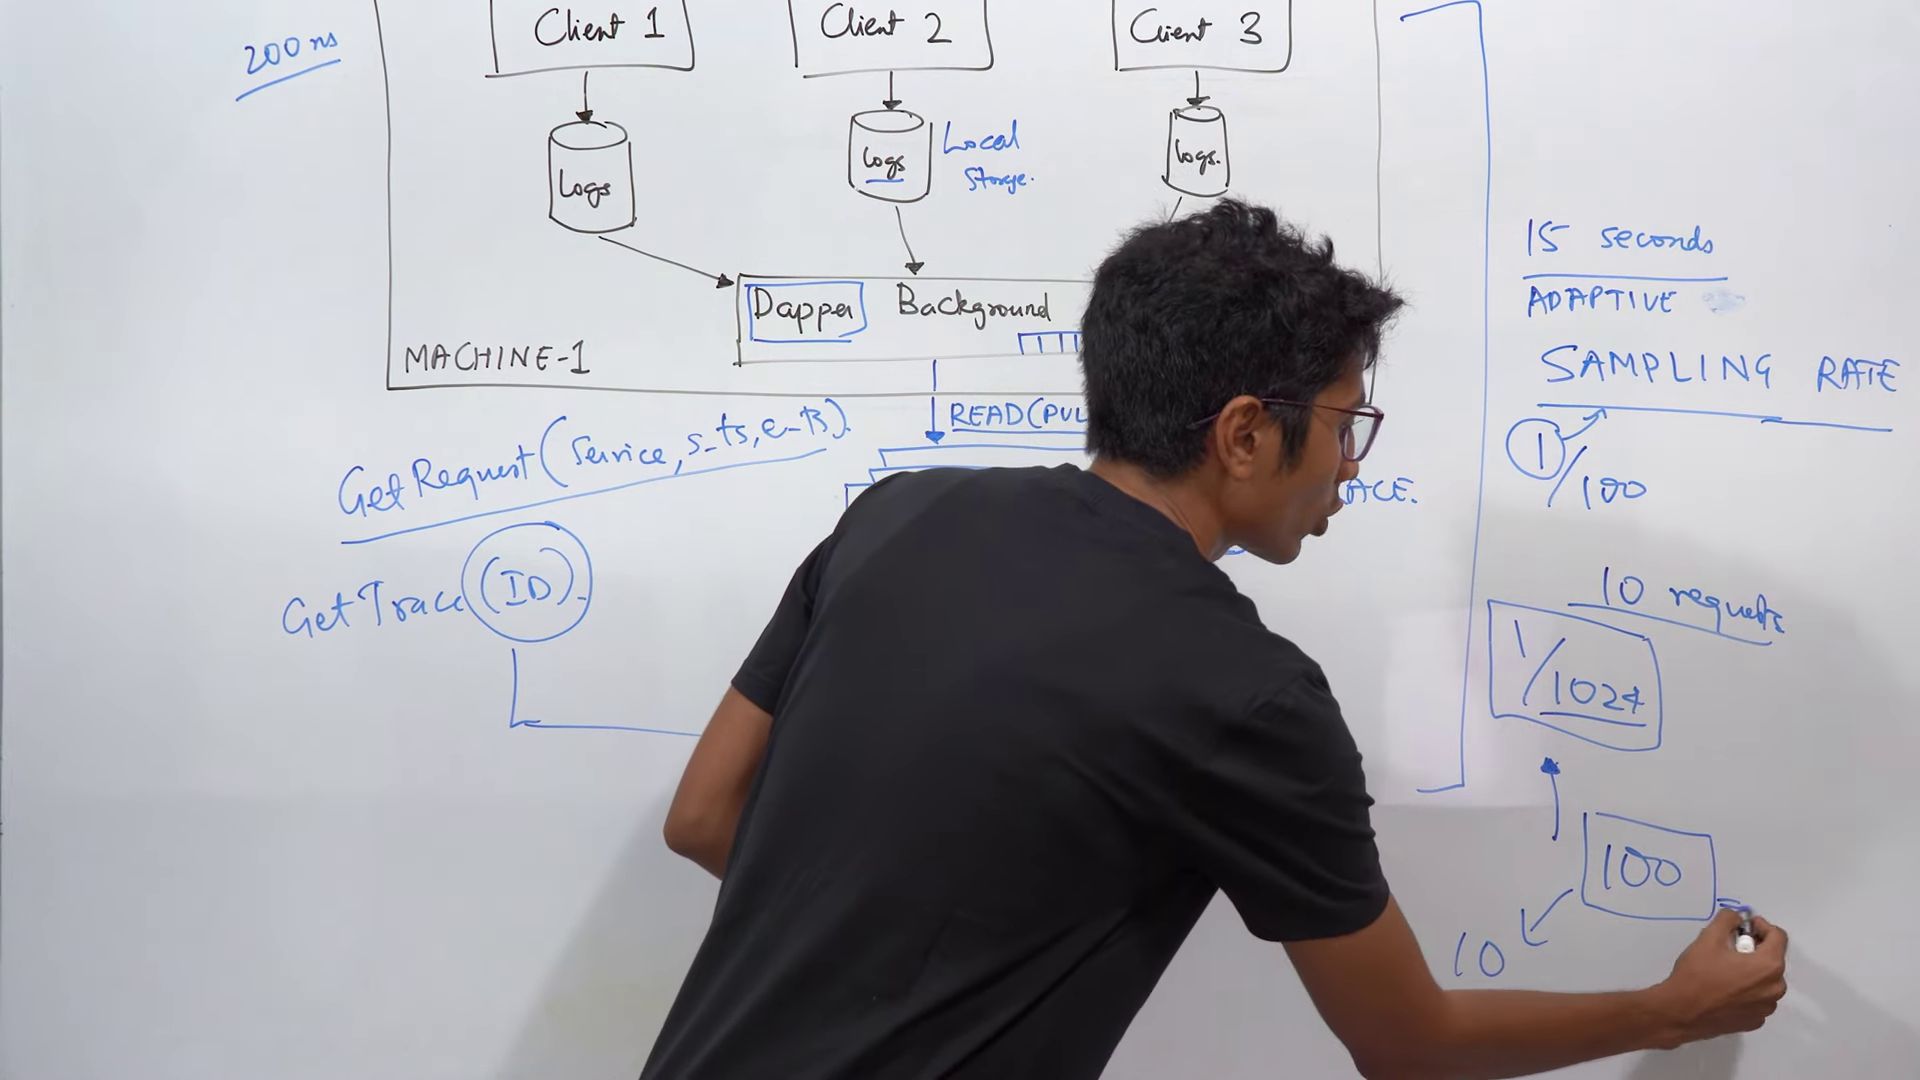 200 ns
Client 1
Client 2
Client 3
Logs
Logs
Local
Storage.
Logs.
Dapper Background
MACHINE-1
READ(PUL
GetRequest(Service, s_ts, e_ts).
GetTrace(ID).
ACE.
15 seconds
ADAPTIVE
SAMPLING RATE
1/100
10 requests
1/1024
100
10